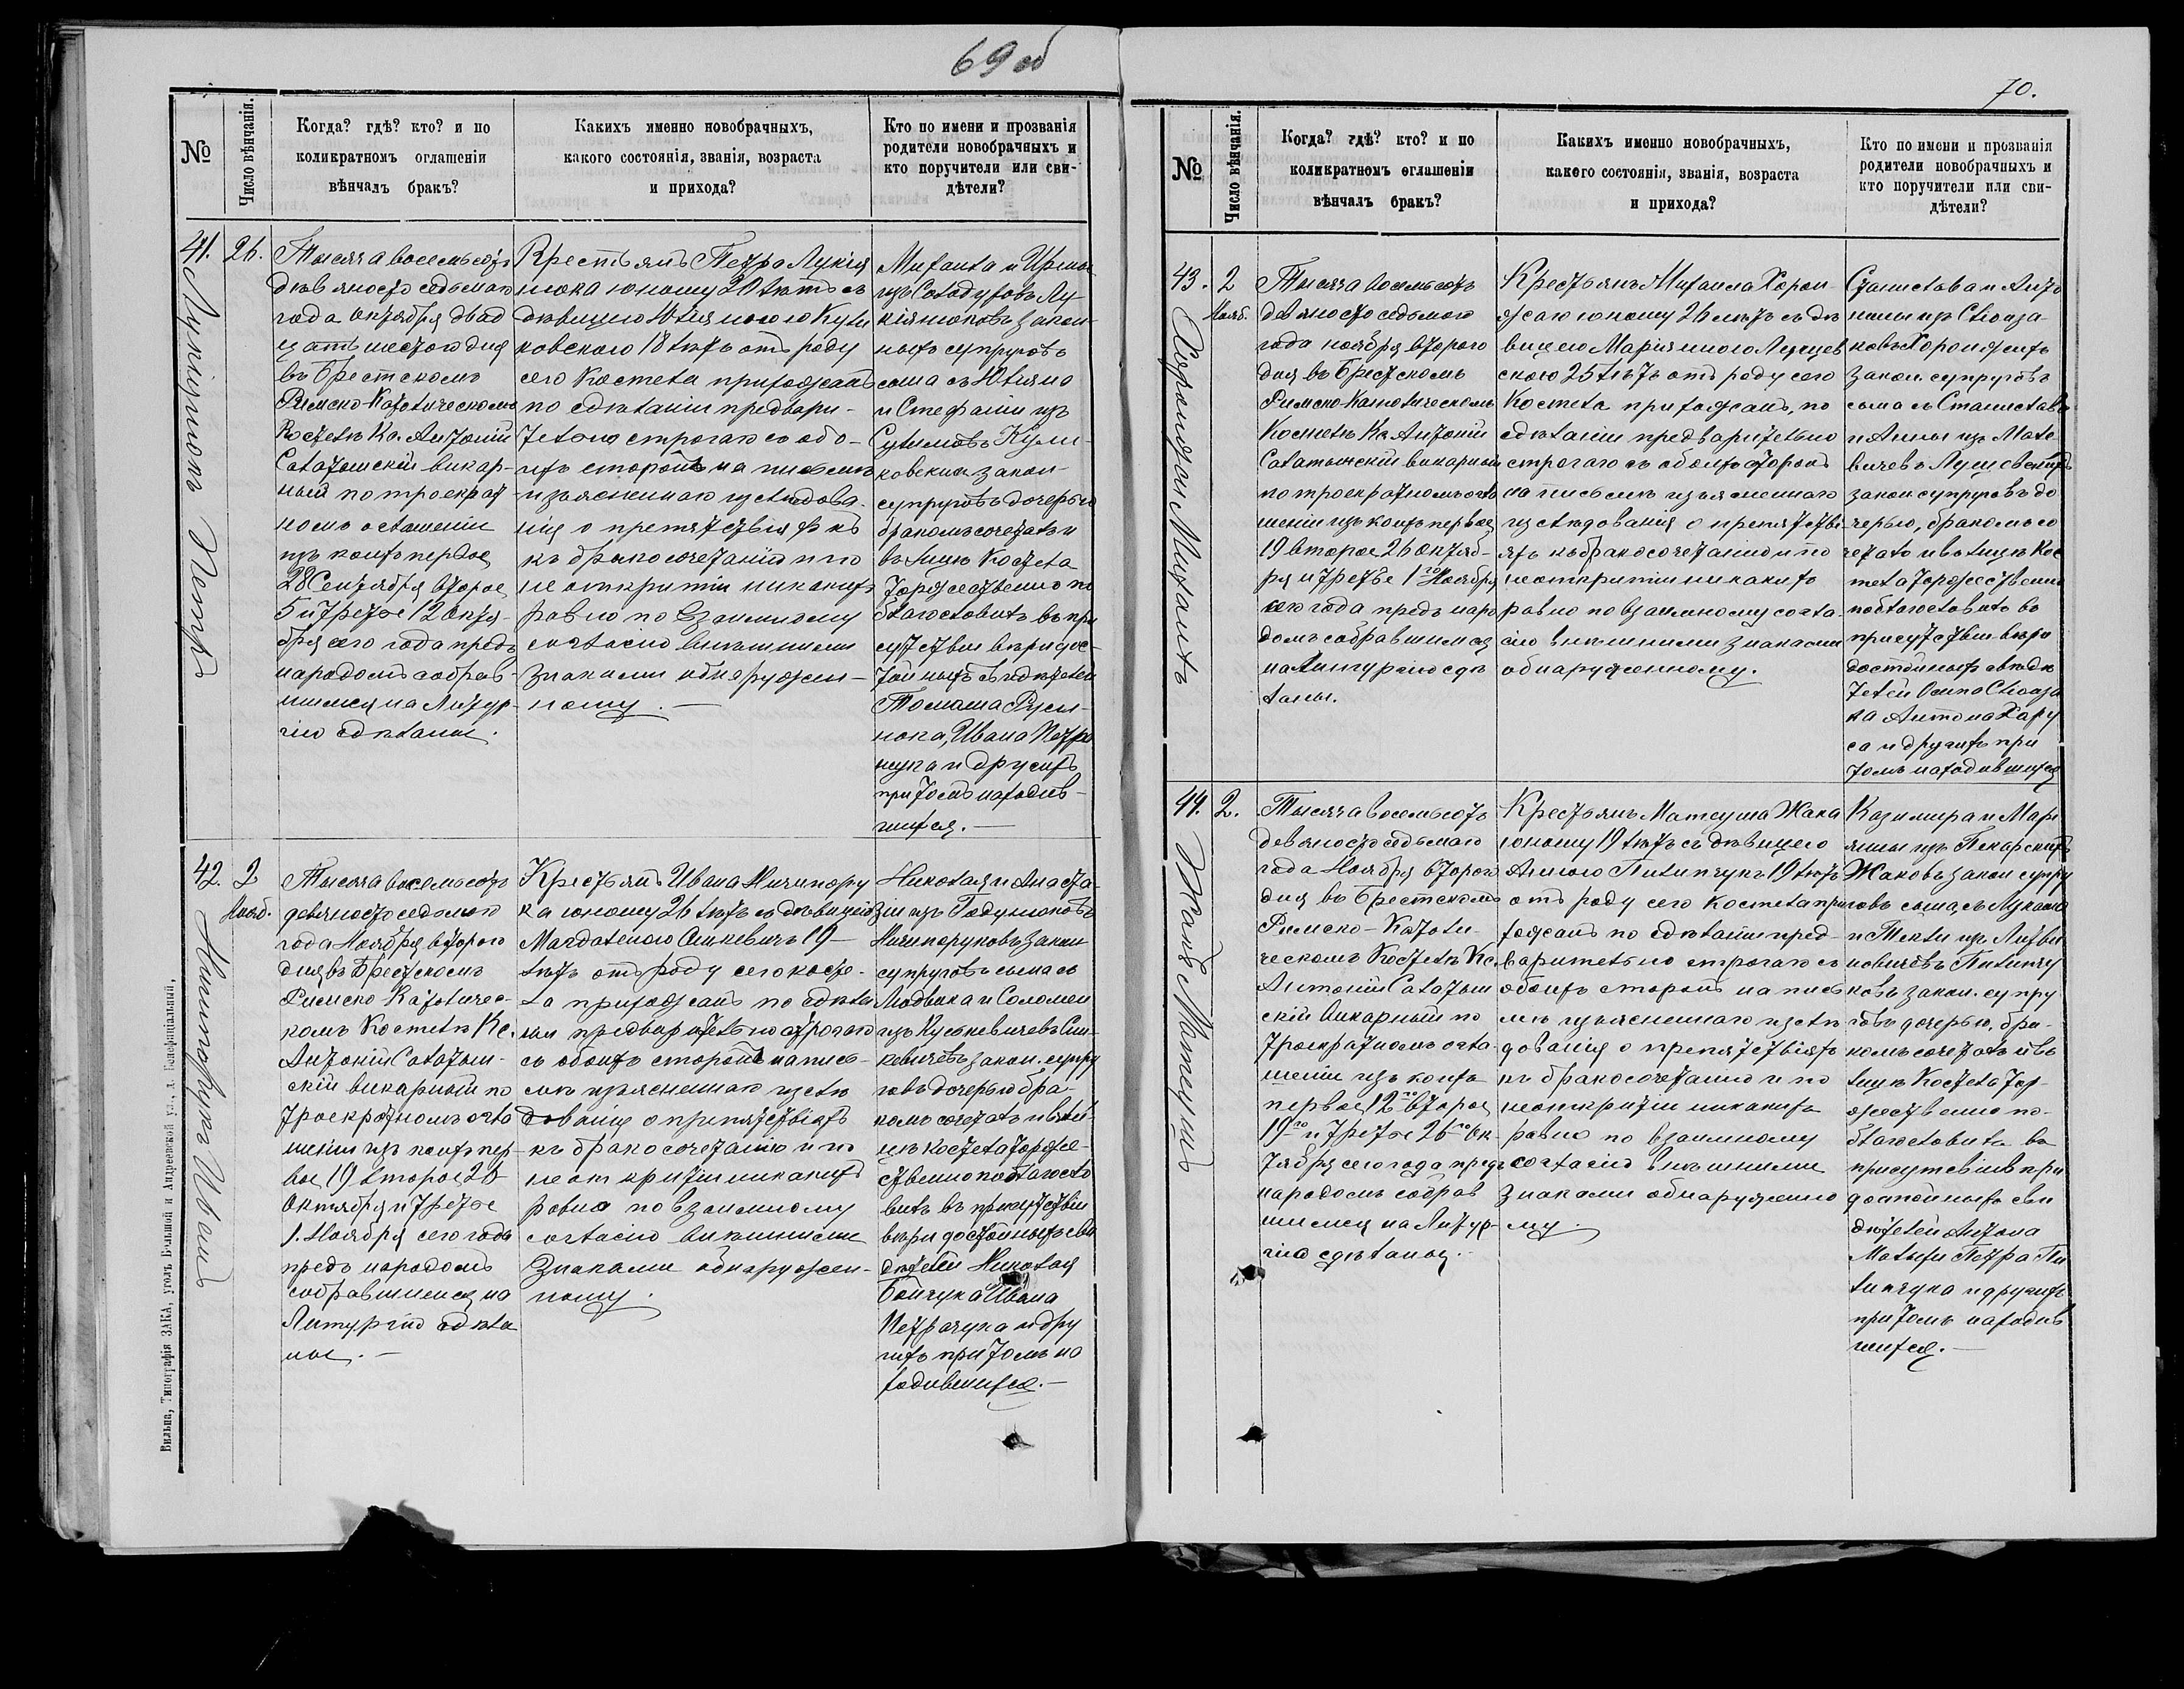 69 об
№
Число вѣнчанія.
Когда? гдѣ? кто? и по
коликратномъ оглашеніи
вѣнчалъ бракъ?
Какихъ именно новобрачныхъ,
какого состоянія, званія, возраста
и прихода?
Кто по имени и прозванія
родители новобрачныхъ и
кто поручители или сви-
дѣтели?
41.
Лукіянюк Петръ
26.
Тысяча восемьсотъ
девяносто седьмаго
года Октября двад
цать шестого дня
въ Брестскомъ
Римско-Католическомъ
Костелѣ Кс. Антоній
Салатынскій викар-
ный по троекрат
номъ оглашеніи
изъ коихъ первое
28 Сентября второе
5 и третье 12 Октя-
бря сего года предъ
народомъ собрав-
шимся на Литур-
гію сдѣланы.
Крестьянъ Петра Лукія
нюка юношу 20 лѣтъ съ
дѣвицею Юліянною Кули
ковскою 18 лѣтъ отъ роду
сего Костела прихожанъ
по сдѣланіи предвари-
тельно строгаго съ обо-
ихъ сторонъ на письмѣ
изъясненнаго изслѣдова-
нія о препятствіяхъ къ
къ бракосочетанію и по
не открытіи никакихъ
равно по взаимному
согласію внѣшними
знаками обнаружен-
ному.
Михаила и Ирины
изъ Солодуховъ Лу
кіянюковъ закон-
ныхъ супруговъ
сына съ Юліяно
и Стефаніи изъ
Кули-
ковских закон-
супруговъ дочерью
бракомъ сочеталъ и
въ лицѣ Костела
торжественно по
благословилъ въ при
сутствіи вѣридос-
тойныхъ свидѣтелей
Томаша Руси-
нюка, Ивана Петра
щука и другихъ
при томъ находив-
шихся.
42.
Ничипорук Иванъ
2
Нояб.
Тысяча восемьсотъ
девяносто седьмаго
года Ноября второго
дня въ Брестскомъ
Римско Католичес-
комъ Костелѣ Кс.
Антоній Салатын-
скій викарный по
троекратномъ огла
шеніи изъ коихъ пер
вое 19 второе 26
Октября и третье
1. Ноября сего года
предъ народомъ
собравшимся на
Литургію сдѣла
ны.
Крестьянъ Ивана Ничипору
ка юношу 26 лѣтъ съ дѣвицею
Магдаленою Синкевичъ 19
лѣтъ отъ роду сего косте-
ла прихожанъ по сдѣла
ніи предварительно строгаго
съ обоихъ сторонъ на пись-
мѣ изъясненнаго изслѣ
дованія о препятствіяхъ
къ бракосочетанію и по
не открытіи никакихъ
равно по взаимному
согласію внѣшними
знаками обнаружен-
ному.
Николая и Анаста-
зіи изъ Годунюковъ
Ничипоруковъ закон
супруговъ сына съ
Людвика и Соломеи
изъ Куськевичевъ Син-
кевичевъ закон. супру
говъ дочерью бра
комъ сочеталъ и въ ли-
цѣ костела торже-
ственно поблагосло
вилъ въ присутствіи
вѣри достойныхъ сви
дѣтелей Николая
Бойчука Ивана
Петрачука и дру
гихъ при томъ на
ходившихся.
Вильна, Типографія ЗАКА, уголъ Большой и Андреевской ул.,
70.
№
Число вѣнчанія.
Когда? гдѣ? кто? и по
коликратномъ оглашеніи
вѣнчалъ бракъ?
Какихъ именно новобрачныхъ,
какого состоянія, званія, возраста
и прихода?
Кто по имени и прозванія
родители новобрачныхъ и
кто поручители или сви-
дѣтели?
43.
Хоронжан Михаилъ
2
Нояб.
Тысяча восемьсотъ
девяносто седьмого
года ноября второго
дня въ Брестскомъ
Римско-Католическомъ
Костелѣ Кс Антоній
Салатынскій викарный
по троекратномъ огла
шеніи изъ коихъ первое
19 второе 26 Октяб-
ря и третье 1го Ноября
сего года предъ наро
домъ собравшимся
на Литургію сдѣ
ланы.
Крестьянъ Михаила Хорон-
жаго юношу 26 лѣтъ съ дѣ
вицею Маріянною Лущев
скою 25 лѣтъ отъ роду сего
Костела прихожанъ, по
сдѣланіи предварительно
строгаго съ обоихъ сторонъ
на письмѣ изъясненнаго
изслѣдованія о препятстві
яхъ къ бракосочетанію и по
не открытіи никакихъ
равно по взаимному согла-
сію внѣшними знаками
обнаруженному.
Станислава и Анто
нины изъ
ковъ Хоронжихъ
закон. супруговъ
сына съ Станислава
и Анны изъ Мате-
вичевъ Лущевскихъ
закон супруговъ до
черью, бракомъ со
четалъ и въ лицѣ Кос
тела торжественно
поблагословилъ въ
присутствіи вѣри
достойныхъ свидѣ
телей Осипа
ка Антона Хару
са и другихъ при
томъ находившихся
44.
Жакъ Матеушъ
2.
Тысяча восемьсотъ
девяносто седьмаго
года Ноября второго
дня въ Брестскомъ
Римско-Католи-
ческомъ Костелѣ Кс.
Антоній Салатын
скій Викарный по
троекратномъ огла
шеніи изъ коихъ
первое 12го второе
19го и третье 26го Ок-
тября сего года предъ
народомъ собрав
шимся на Литур-
гію сдѣланы.
Крестьянъ Матеуша Жака
юношу 19 лѣтъ съ дѣвицею
Анною Пилипчукъ 19 лѣтъ
отъ роду сего костела при
хожанъ по сдѣланіи пред-
варительно строгаго съ
обоихъ сторонъ на пись
мѣ изъясненнаго изслѣ
дованія о препятствіяхъ
къ бракосочетанію и по
не открытіи никакихъ
равно по взаимному
согласію внѣшними
знаками обнаруженно
му.
Казимира и Мари
янны изъ Пекарскихъ
Жаковъ закон супру
говъ сына, съ Лукаша
и Теклы изъ Литви
новичевъ Пилипчу
ковъ закон. супру
говъ дочерью, бра-
комъ сочеталъ и въ
лицѣ Костела тор-
жественно по-
благословилъ въ
присутствіи вѣри
достойныхъ сви
дѣтелей Антона
Петра Пи
липчука и другихъ
при томъ находив
шихся.